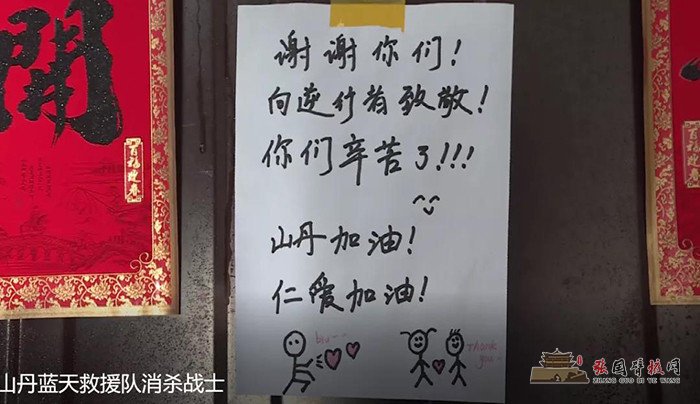 開
百福迎春
谢谢你们!
向逆行者致敬!
你们辛苦了!!!
山丹加油!
仁爱加油!
biu~~
Thank
you~
山丹蓝天救援队消杀战士
张国臂掖网
ZHANG GUO BI YE WANG